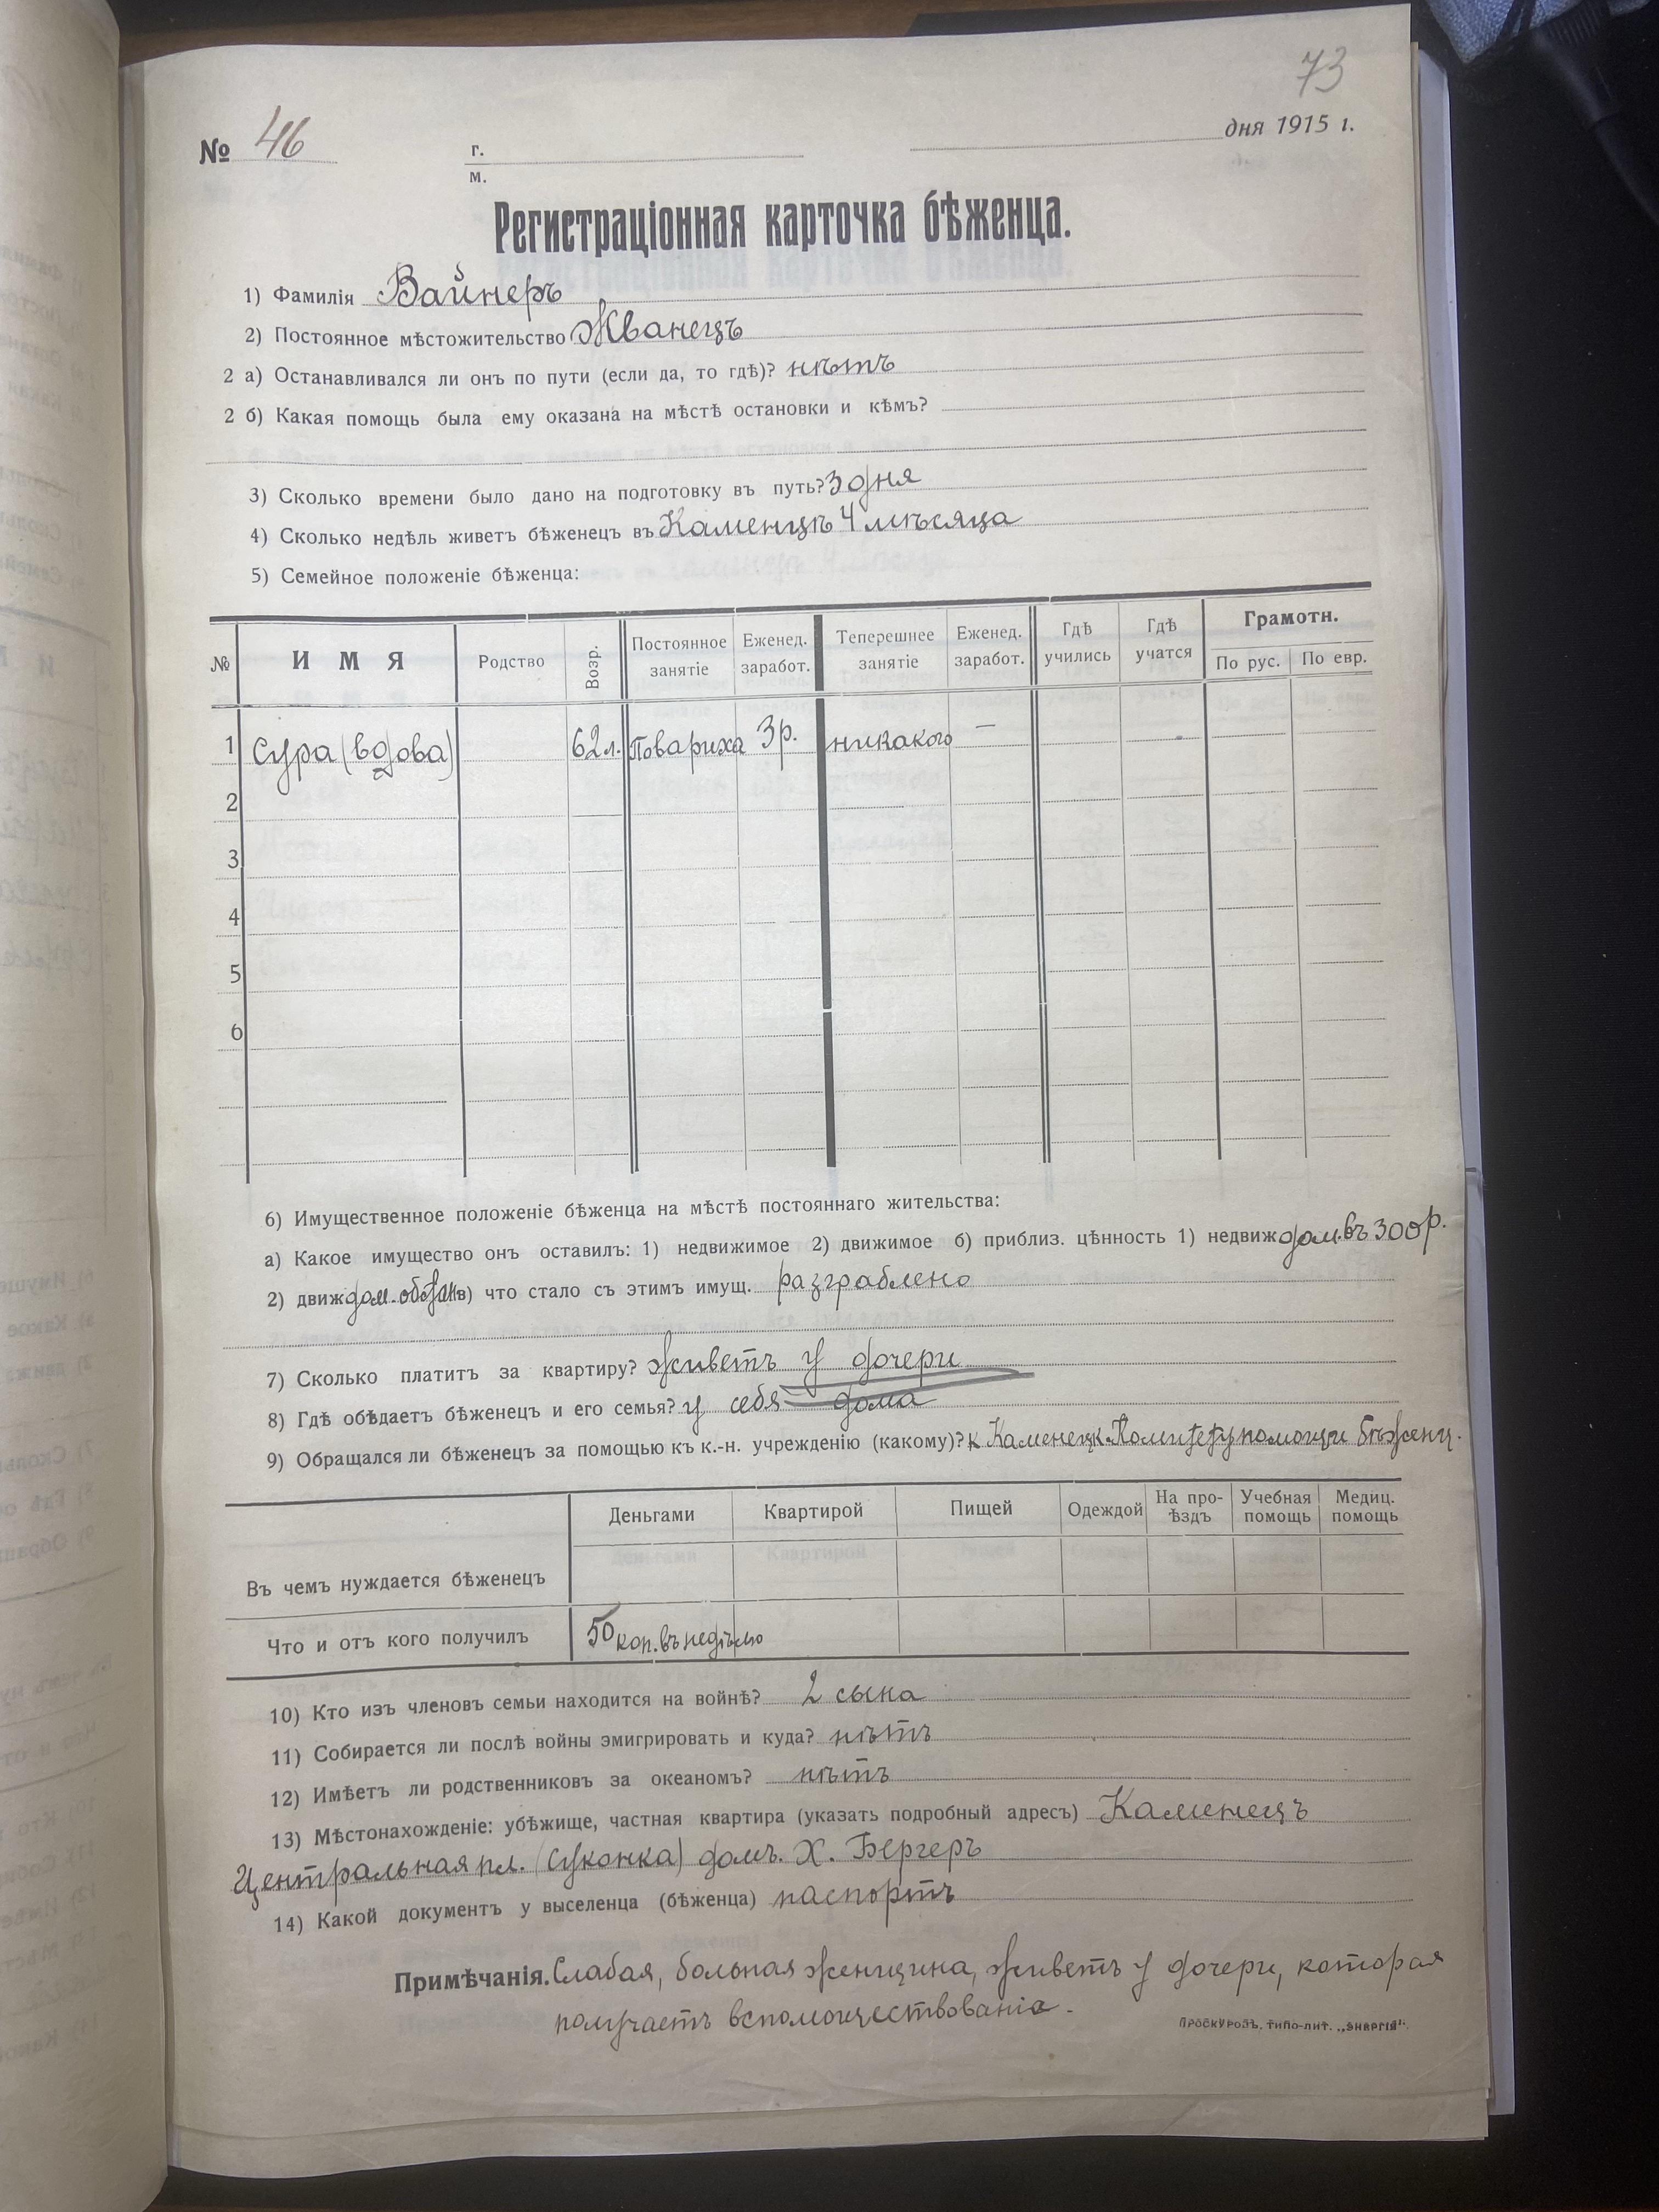 73
№ 46 г. м. дня 1915 г.
Регистраціонная карточка бѣженца.
1) Фамилія Вайнеръ
2) Постоянное мѣстожительство Жванецъ
2 а) Останавливался ли онъ по пути (если да, то гдѣ)? нѣтъ
2 б) Какая помощь была ему оказана на мѣстѣ остановки и кѣмъ?
3) Сколько времени было дано на подготовку въ путь? 3 дня
4) Сколько недѣль живетъ бѣженецъ въ Каменцѣ 4 мѣсяца
5) Семейное положеніе бѣженца:
№ ИМЯ Родство Возр. Постоянное занятіе Еженед. заработ. Теперешнее занятіе Еженед. заработ. Гдѣ учились Гдѣ учатся Грамотн. По рус. По евр.
1 Сура (вдова) 62 л. Повариха 3 р. никакого —
2
3
4
5
6
6) Имущественное положеніе бѣженца на мѣстѣ постояннаго жительства:
а) Какое имущество онъ оставилъ: 1) недвижимое 2) движимое б) приблиз. цѣнность 1) недвиж дом. въ 300 р.
2) движ дом. в) что стало съ этимъ имущ. разграблено
7) Сколько платитъ за квартиру? живетъ у дочери
8) Гдѣ обѣдаетъ бѣженецъ и его семья? у себя дома
9) Обращался ли бѣженецъ за помощью къ к.-н. учрежденію (какому)? к Каменецк. Комитету помощи бѣженц.
Деньгами Квартирой Пищей Одеждой На проѣздъ Учебная помощь Медиц. помощь
Въ чемъ нуждается бѣженецъ
Что и отъ кого получилъ 50 коп. въ недѣлю
10) Кто изъ членовъ семьи находится на войнѣ? 2 сына
11) Собирается ли послѣ войны эмигрировать и куда? нѣтъ
12) Имѣетъ ли родственниковъ за океаномъ? нѣтъ
13) Мѣстонахожденіе: убѣжище, частная квартира (указать подробный адресъ) Каменецъ
Центральная пл. (Суконка) домъ. Х. Бергеръ
14) Какой документъ у выселенца (бѣженца) паспортъ
Примѣчанія. Слабая, больная женщина, живетъ у дочери, которая
получаетъ вспомоществованіе.
Проскуровъ, типо-лит. „Энергія".